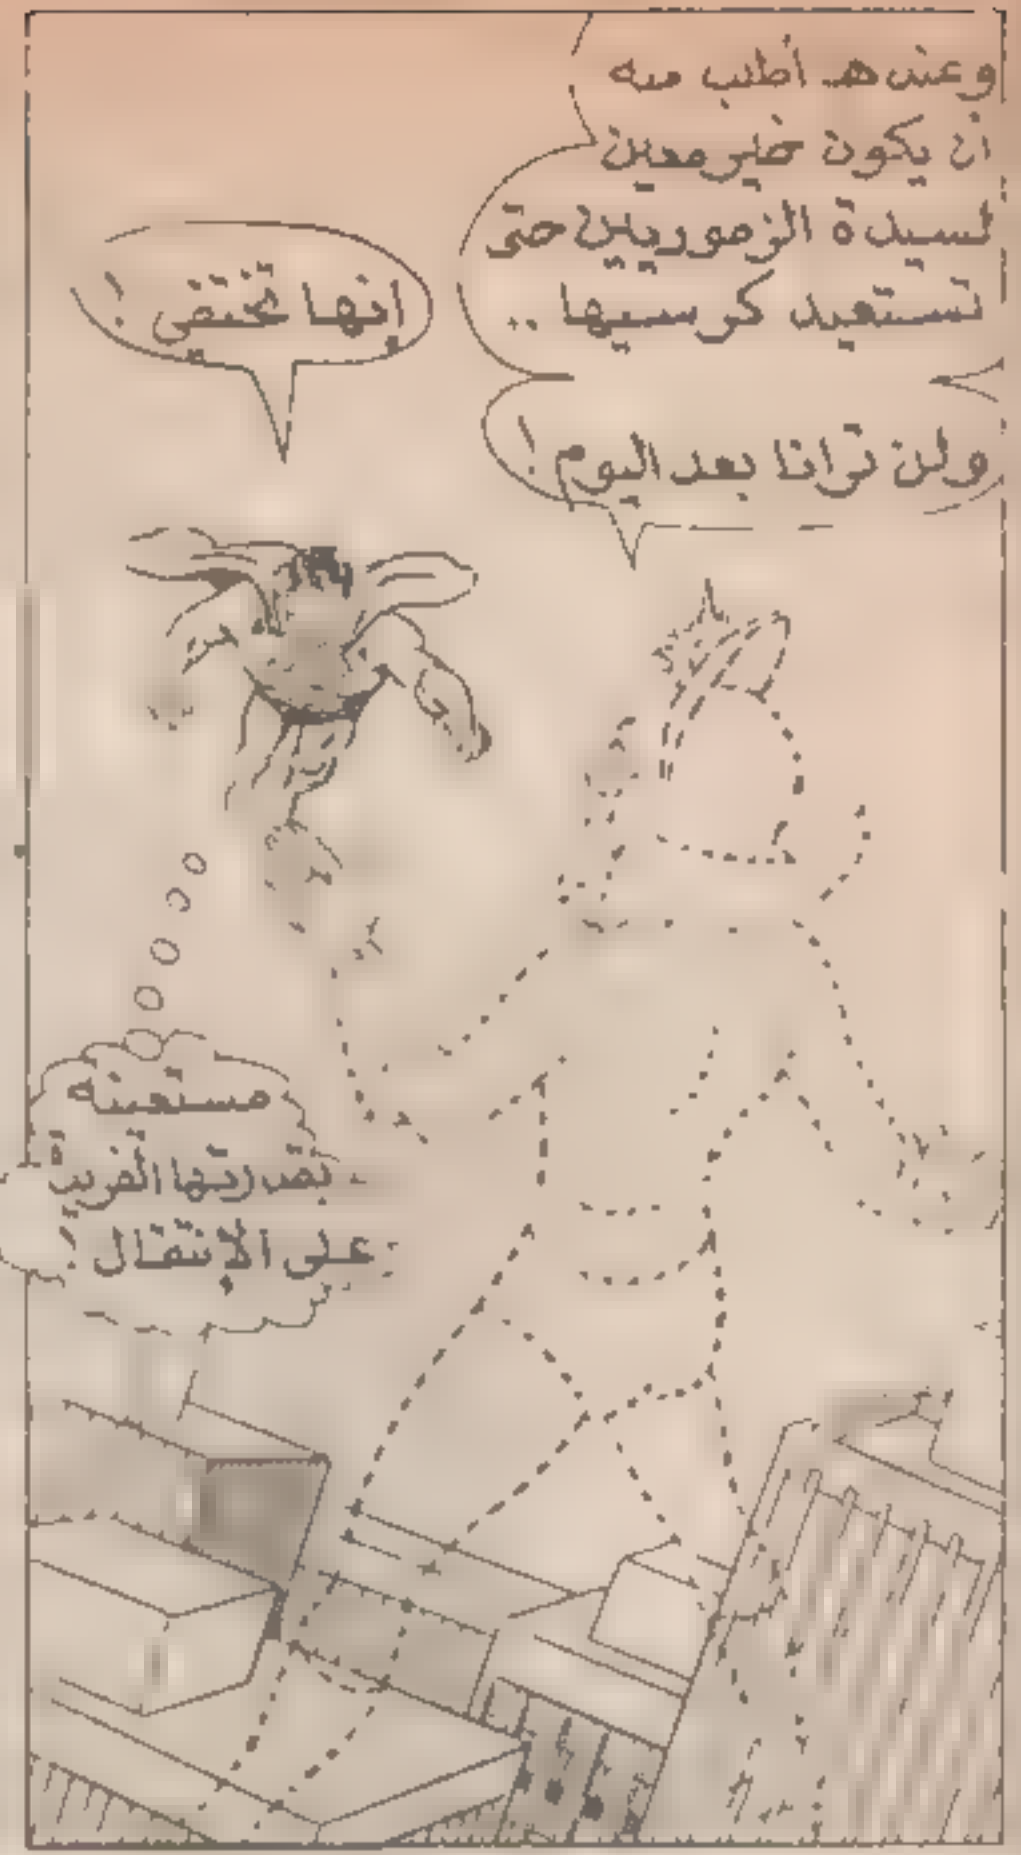 وعندها أطلب منه
أن يكون خير معين
لسيدة الزموريين حتى
تستعيد كرسيها ..
ولن ترانا بعد اليوم !
إنها تختفي !
مستعينه
بقدرتها الفريدة
على الإنتقال !